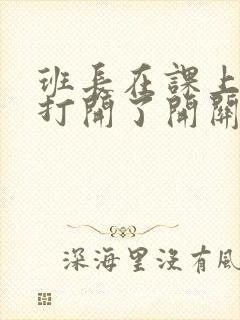 班長在課上
打開了開關
深海里沒有風